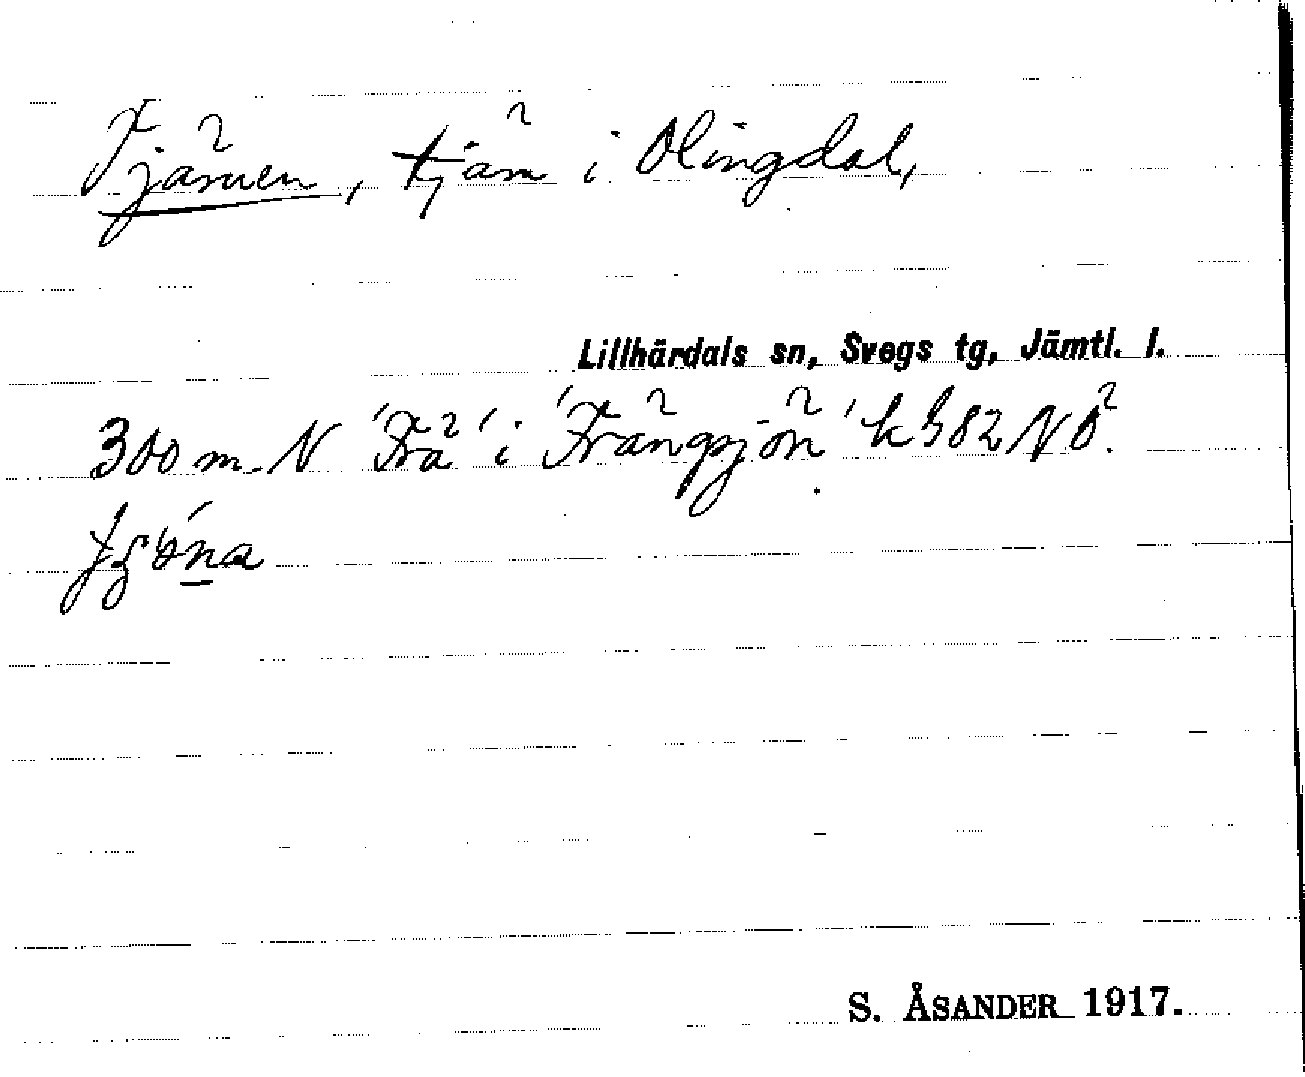 Tjärnen, tjärn i Olingdal,
Lillhärdals sn, Svegs tg, Jämtl. l.
300 m. N 'Trå' i 'Trångsjön' k 982 NÖ.
S. ÅSANDER 1917.